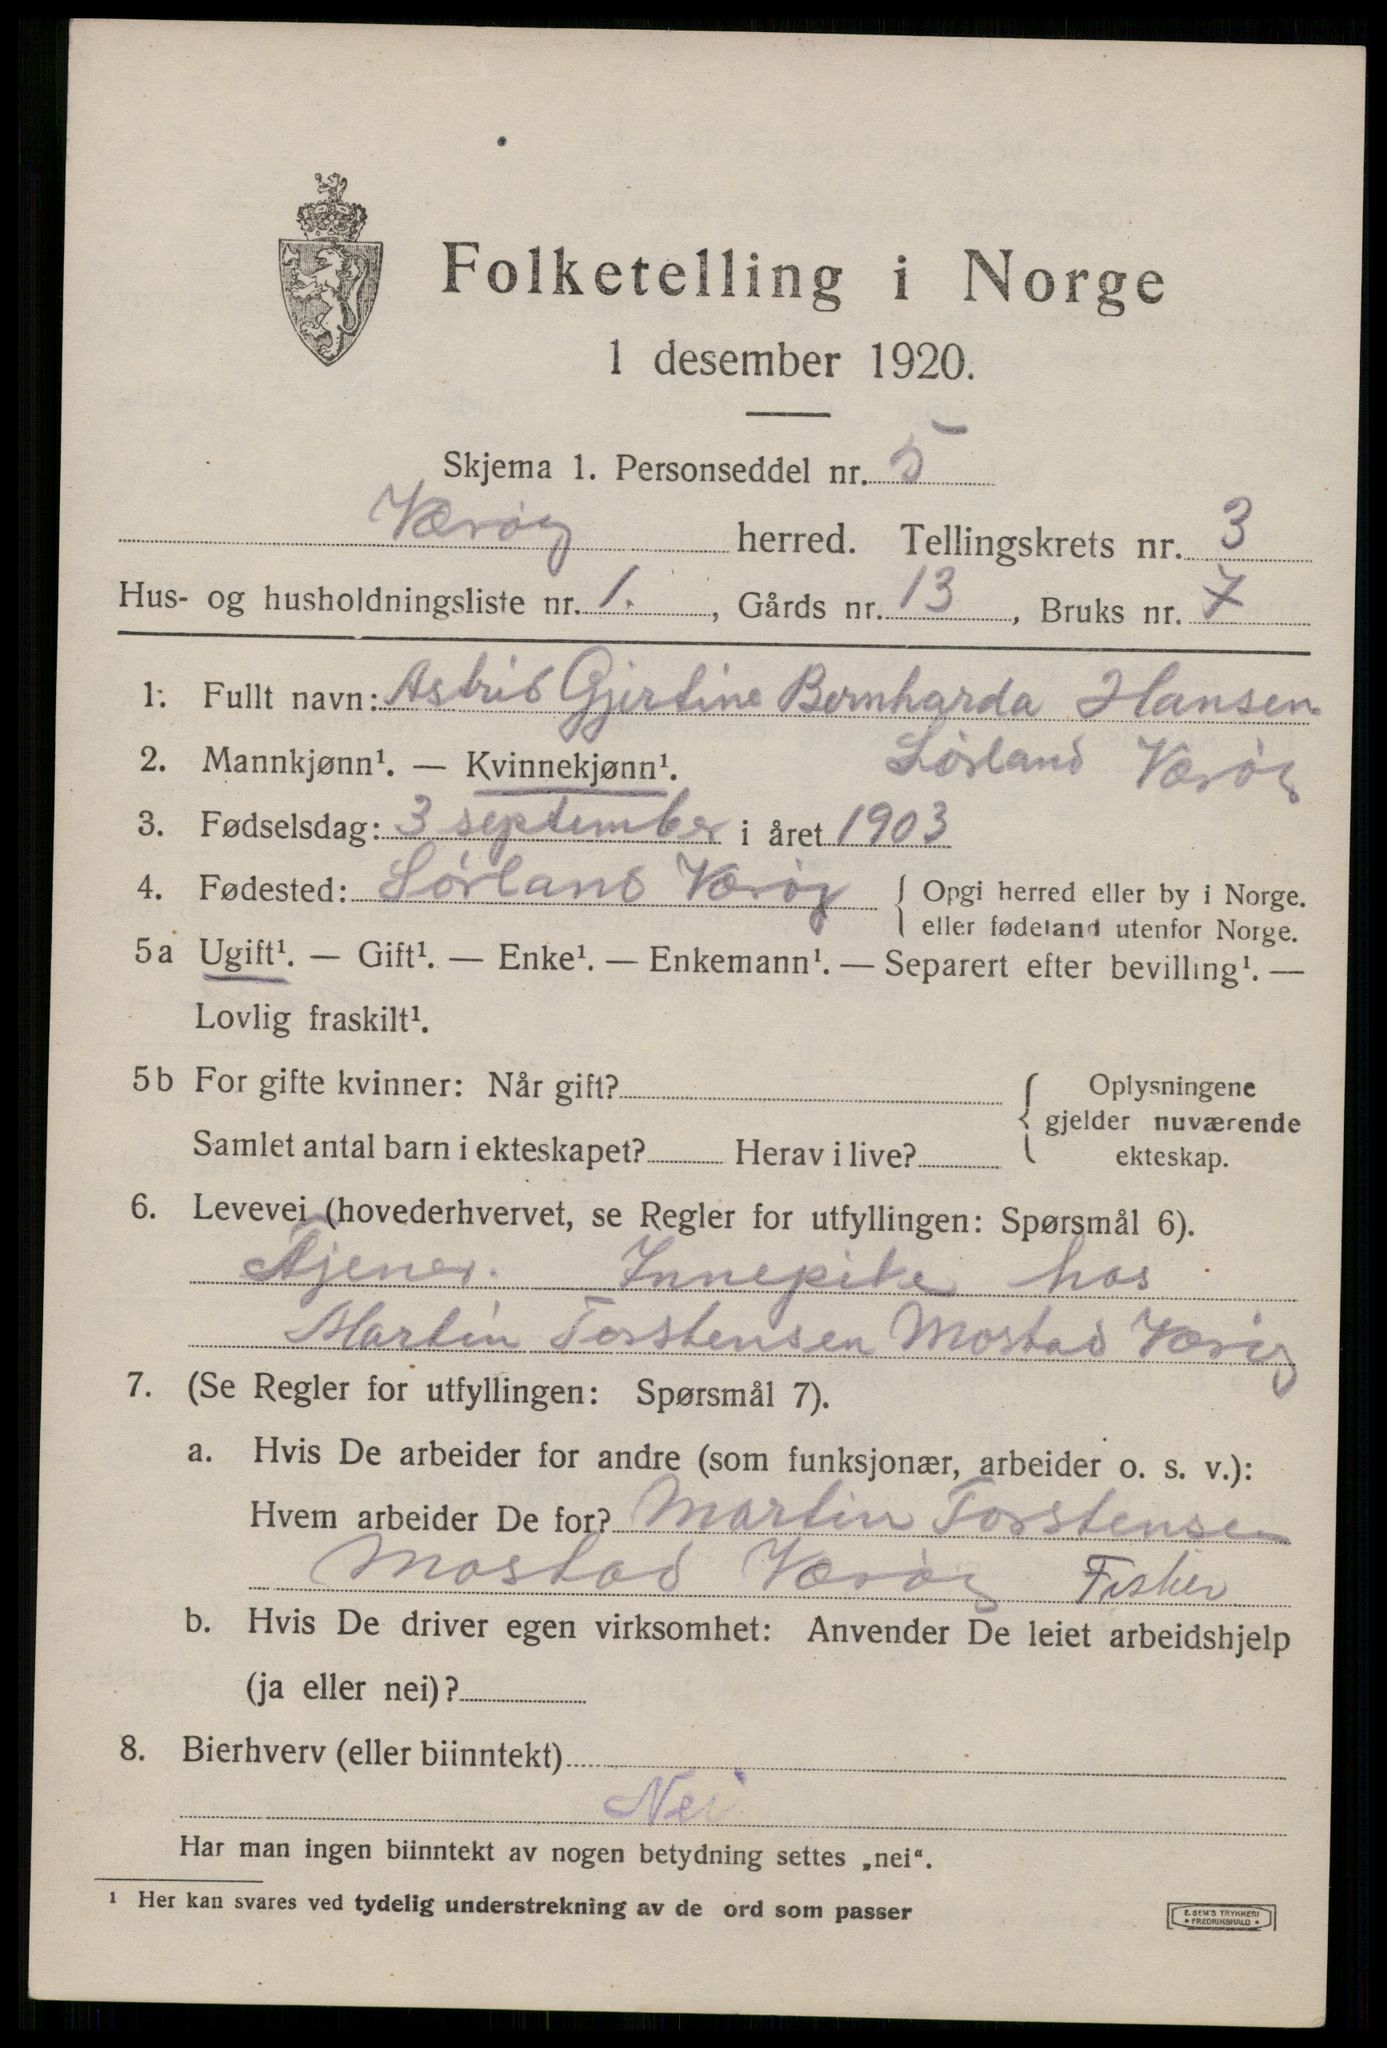 Folketelling i Norge
1 desember 1920.
Skjema 1. Personseddel nr. 5
Værøy herred. Tellingskrets nr. 3
Hus- og husholdningsliste nr. 1. , Gårds nr. 13 , Bruks nr. 7
1. Fullt navn: Astrid Gjertine Bernharda Hansen
Sørland Værøy
2. Mannkjønn¹. — Kvinnekjønn¹.
3. Fødselsdag: 3 september i året 1903
4. Fødested: Sørland Værøy { Opgi herred eller by i Norge.
eller fødeland utenfor Norge.
5a Ugift¹. — Gift¹. — Enke¹. — Enkemann¹. — Separert efter bevilling¹. —
Lovlig fraskilt¹.
5b For gifte kvinner: Når gift? { Oplysningene
gjelder nuværende
ekteskap.
Samlet antal barn i ekteskapet? Herav i live?
6. Levevei (hovederhvervet, se Regler for utfyllingen: Spørsmål 6).
Tjener. Innepike hos
Martin Torstensen Mostad Værøy
7. (Se Regler for utfyllingen: Spørsmål 7).
a. Hvis De arbeider for andre (som funksjonær, arbeider o. s. v.):
Hvem arbeider De for? Martin Torstensen
Mostad Værøy Fisker
b. Hvis De driver egen virksomhet: Anvender De leiet arbeidshjelp
(ja eller nei)?
8. Bierhverv (eller biinntekt)
Nei
Har man ingen biinntekt av nogen betydning settes „nei“.
¹ Her kan svares ved tydelig understrekning av de ord som passer
E. SEM'S TRYKKERI
FREDRIKSHALD